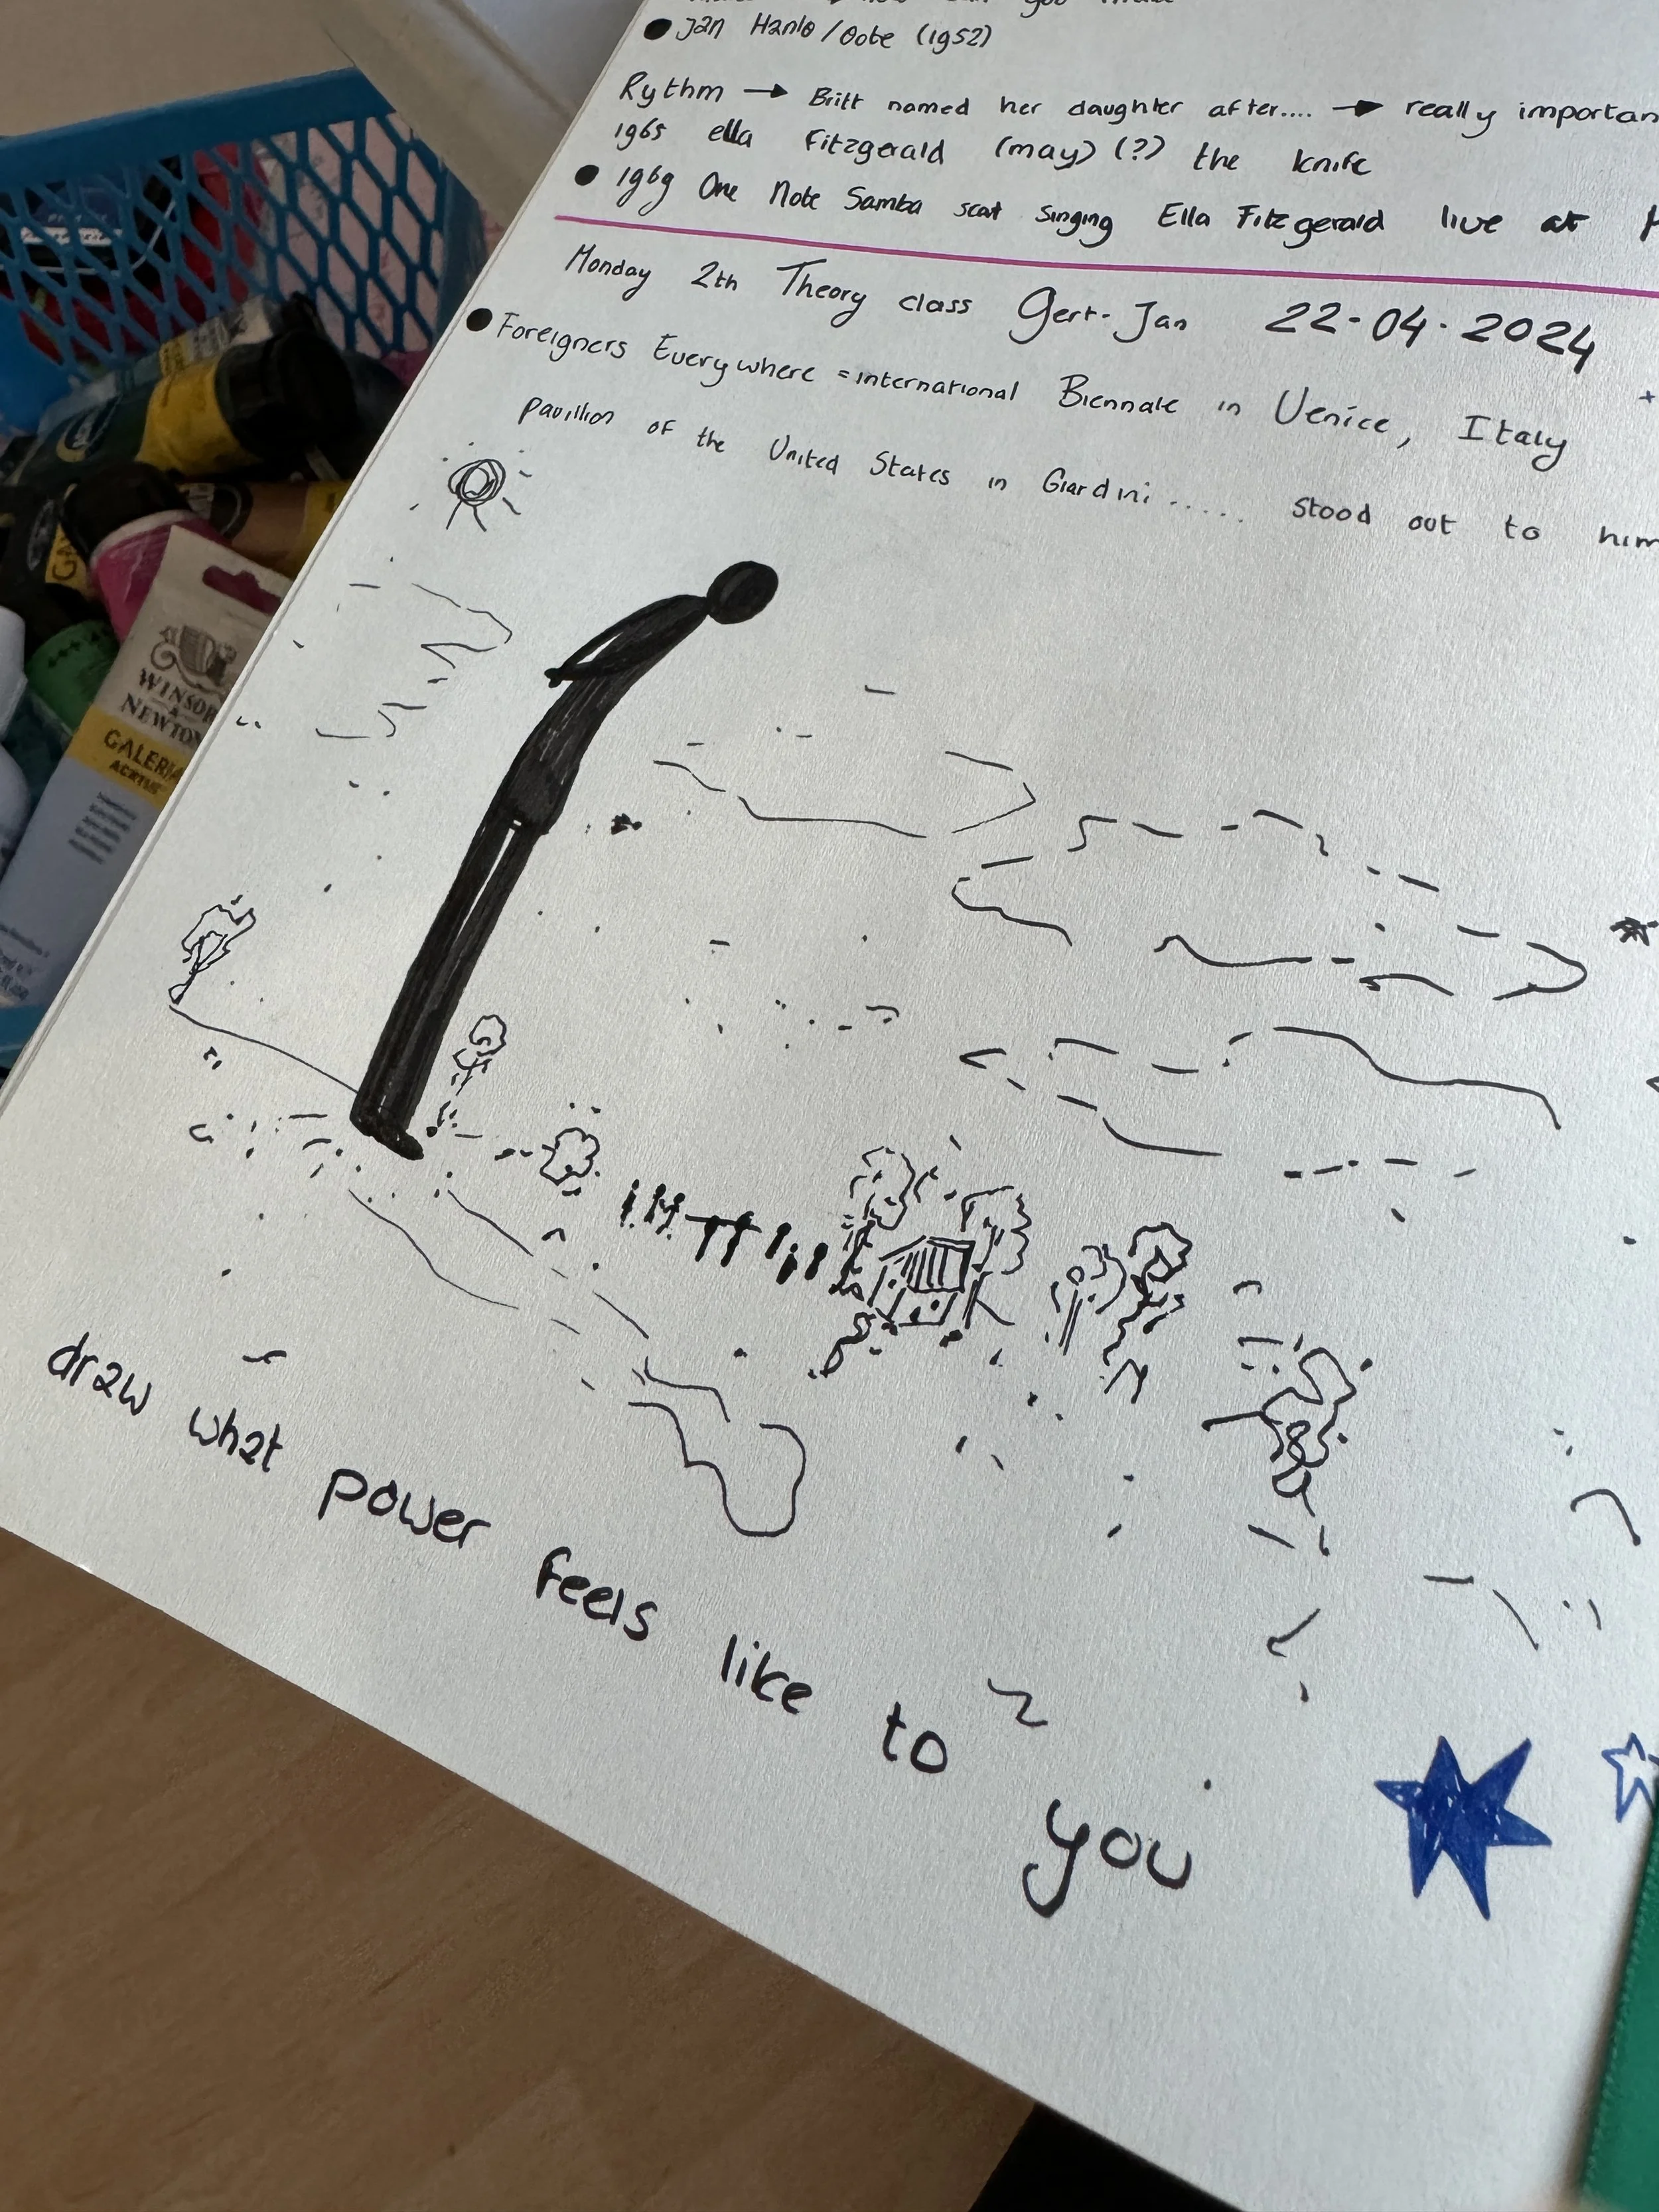 you
● Jan Hanlo / Oote (1952)
Rythm → Britt named her daughter after.... → really importan
1965 ella Fitzgerald (may) (?) the knife
● 1969 One Note Samba scat singing Ella Fitzgerald live at
Monday 2th Theory class Gert-Jan 22-04-2024
● Foreigners Everywhere = international Biennale in Venice, Italy
pavillion of the United States in Giardini ..... stood out to him
draw what power feels like to you
WINSOR
&
NEWTON
GALERIA
ACRYLIC